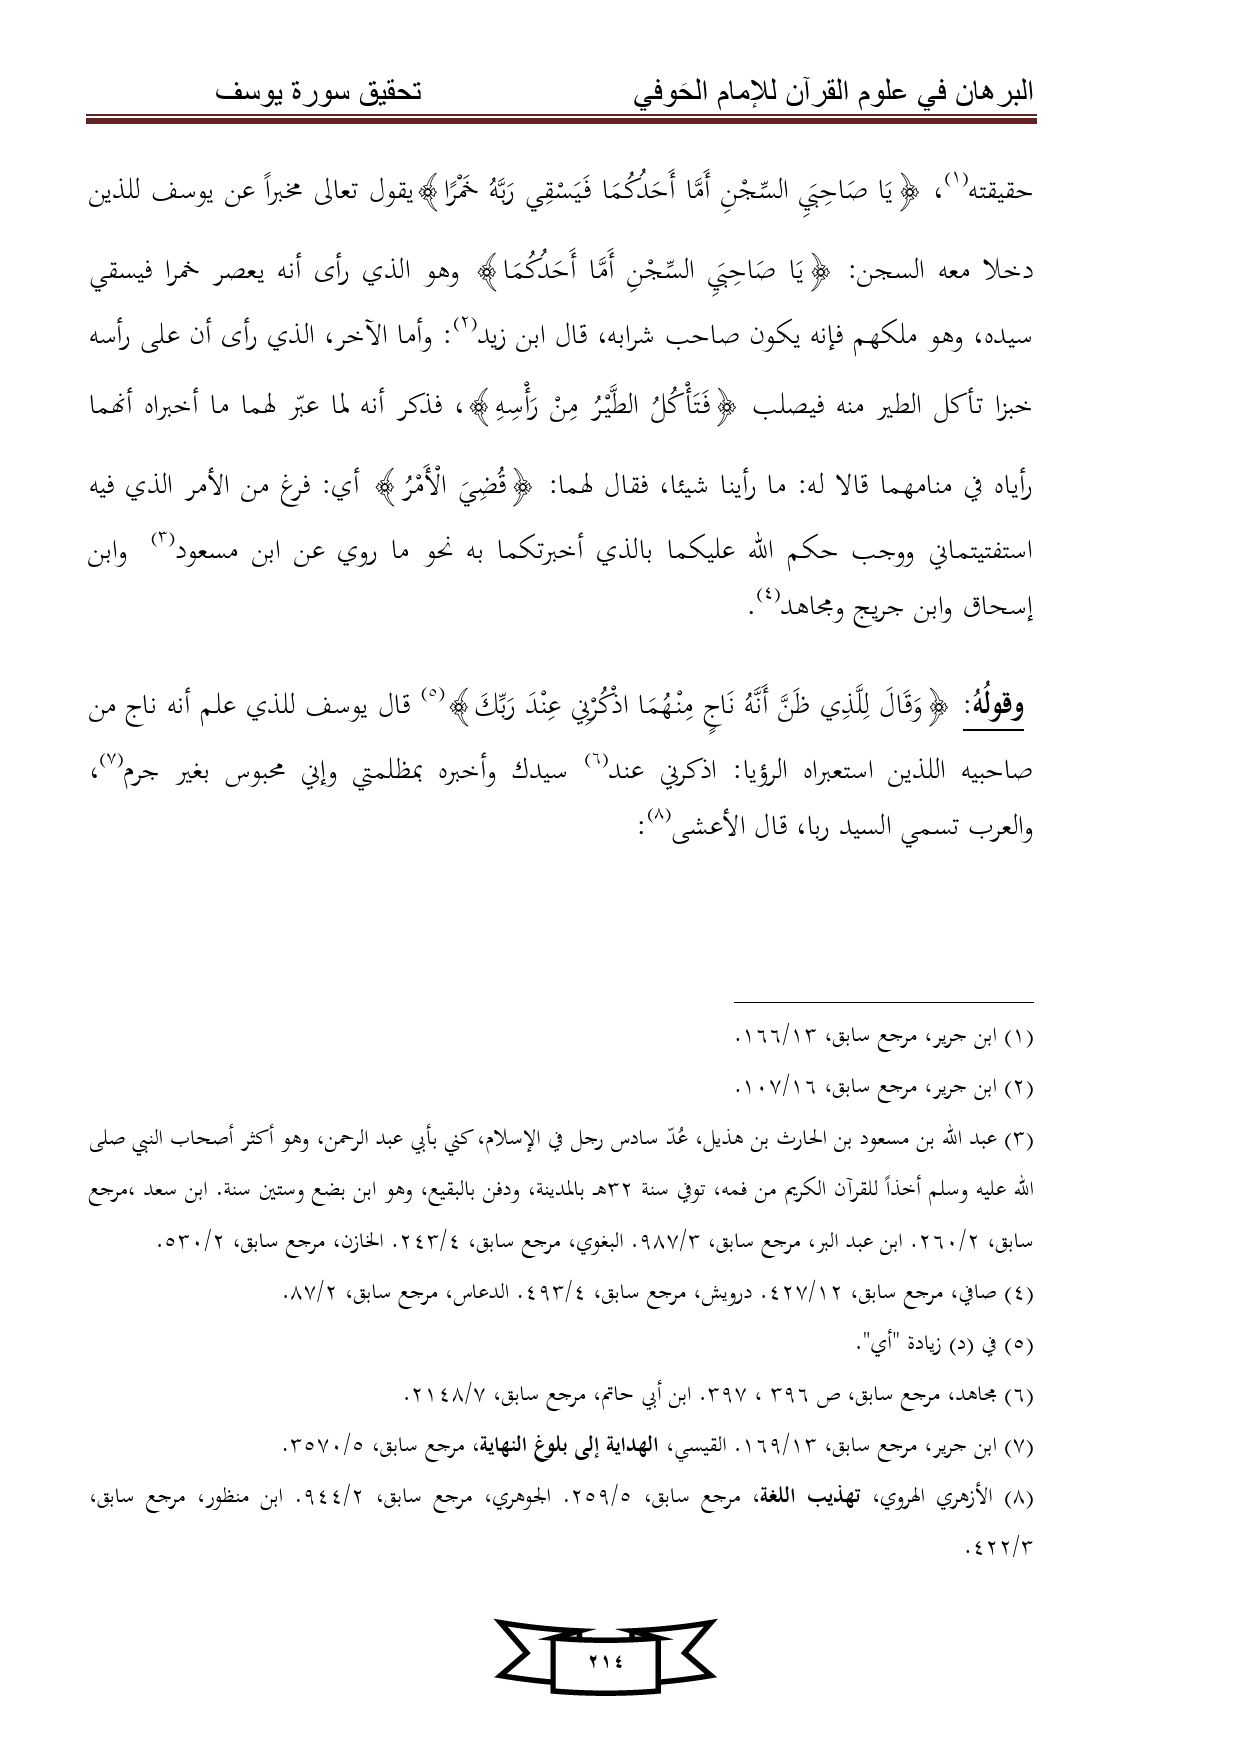 البرهان في علوم القرآن للإمام الحَوفي تحقيق سورة يوسف
حقيقته(١)، ﴿يَا صَاحِبَيِ السِّجْنِ أَمَّا أَحَدُكُمَا فَيَسْقِي رَبَّهُ خَمْرًا﴾ يقول تعالى مخبراً عن يوسف للذين
دخلا معه السجن: ﴿يَا صَاحِبَيِ السِّجْنِ أَمَّا أَحَدُكُمَا﴾ وهو الذي رأى أنه يعصر خمرا فيسقي
سيده، وهو ملكهم فإنه يكون صاحب شرابه، قال ابن زيد(٢): وأما الآخر، الذي رأى أن على رأسه
خبزا تأكل الطير منه فيصلب ﴿فَتَأْكُلُ الطَّيْرُ مِنْ رَأْسِهِ﴾، فذكر أنه لما عبّر لهما ما أخبراه أنهما
رأياه في منامهما قالا له: ما رأينا شيئا، فقال لهما: ﴿قُضِيَ الْأَمْرُ﴾ أي: فرغ من الأمر الذي فيه
استفتيتماني ووجب حكم الله عليكما بالذي أخبرتكما به نحو ما روي عن ابن مسعود(٣) وابن
إسحاق وابن جريج ومجاهد(٤).
وقولُهُ: ﴿وَقَالَ لِلَّذِي ظَنَّ أَنَّهُ نَاجٍ مِنْهُمَا اذْكُرْنِي عِنْدَ رَبِّكَ﴾(٥) قال يوسف للذي علم أنه ناج من
صاحبيه اللذين استعبراه الرؤيا: اذكرني عند(٦) سيدك وأخبره بمظلمتي وإني محبوس بغير جرم(٧)،
والعرب تسمي السيد ربا، قال الأعشى(٨):
(١) ابن جرير، مرجع سابق، ١٦٦/١٣.
(٢) ابن جرير، مرجع سابق، ١٠٧/١٦.
(٣) عبد الله بن مسعود بن الحارث بن هذيل، عُدّ سادس رجل في الإسلام، كني بأبي عبد الرحمن، وهو أكثر أصحاب النبي صلى
الله عليه وسلم أخذاً للقرآن الكريم من فمه، توفي سنة ٣٢هـ بالمدينة، ودفن بالبقيع، وهو ابن بضع وستين سنة. ابن سعد ،مرجع
سابق، ٢٦٠/٢. ابن عبد البر، مرجع سابق، ٩٨٧/٣. البغوي، مرجع سابق، ٢٤٣/٤. الخازن، مرجع سابق، ٥٣٠/٢.
(٤) صافي، مرجع سابق، ٤٢٧/١٢. درويش، مرجع سابق، ٤٩٣/٤. الدعاس، مرجع سابق، ٨٧/٢.
(٥) في (د) زيادة "أي".
(٦) مجاهد، مرجع سابق، ص ٣٩٦ ، ٣٩٧. ابن أبي حاتم، مرجع سابق، ٢١٤٨/٧.
(٧) ابن جرير، مرجع سابق، ١٦٩/١٣. القيسي، الهداية إلى بلوغ النهاية، مرجع سابق، ٣٥٧٠/٥.
(٨) الأزهري الهروي، تهذيب اللغة، مرجع سابق، ٢٥٩/٥. الجوهري، مرجع سابق، ٩٤٤/٢. ابن منظور، مرجع سابق،
٤٢٢/٣.
٢١٤